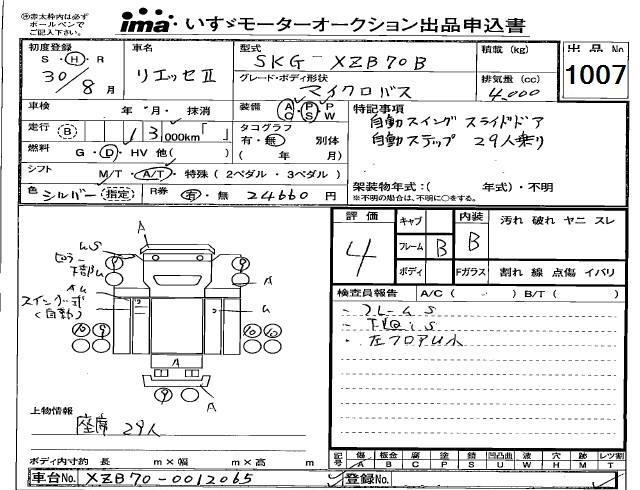 ※赤太枠内は必ず
ボールペンで
ご記入下さい。
ima いすゞモーターオークション出品申込書
初度登録 車名 型式 積載 (kg) 出品No
S・H・R リエッセⅡ SKG-XZB70B 1007
30/8月 グレード・ボディ形状 排気量 (cc)
マイクロバス 4,000
車検 年 月 抹消 装備 AC PS PW 特記事項
走行 B 13,000km「 」 タコグラフ 自動スイング スライドドア
有・無 別体 自動ステップ 29人乗り
燃料 G・D・HV 他( ) ( 年 月)
シフト M/T・A/T・特殊 (2ペダル・3ペダル) 架装物年式:( 年式)・不明
色 シルバー 指定 R券 有・無 24660 円 ※不明の場合は、不明に○をする。
評価 キャブ 内装 汚れ 破れ ヤニ スレ
4 フレーム B B
ボディ Fガラス 割れ 線 点傷 イバリ
検査員報告 A/C ( ) B/T ( )
フレームS
下回りS
A
A
A
スイング式
(自動)
上物情報
座席 29人
ボディ内寸約 長 m×幅 m×高 m
記号 傷A 板金B 腐C 塗P 錆S 凹凸曲U 波W 穴H 跡M レツ割T
車台No. XZB70-0012065 登録No.